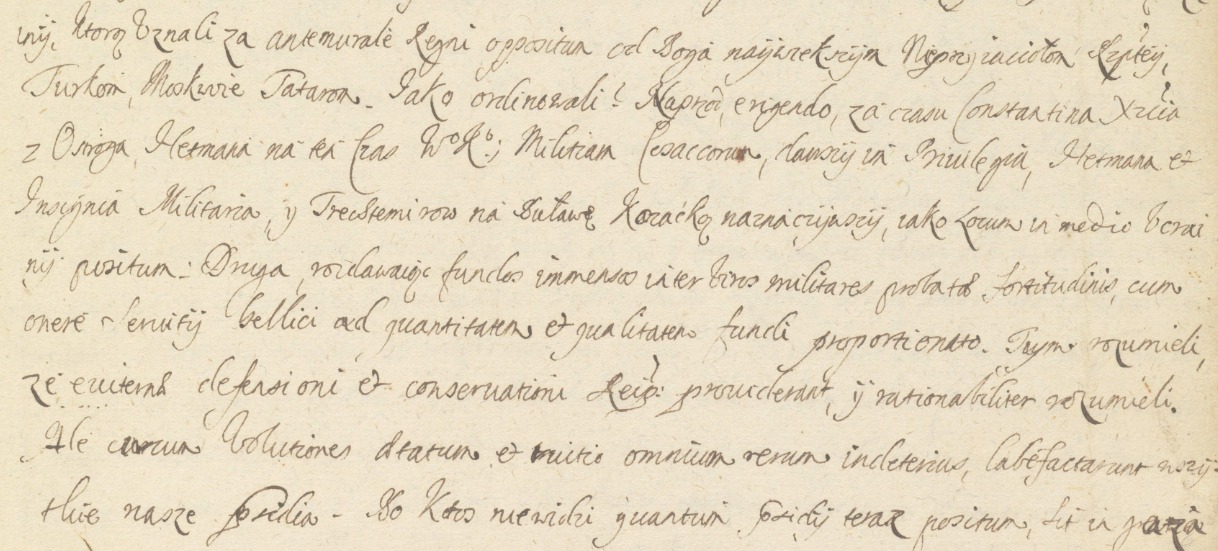 inij, ktorą Uznali za antemurale Regni oppositum od Boga naywiekszym Nieprzyiaciołom Rzptey,
Turkom, Moskwie Tatarom. Jako ordinowali? Naprzod, erigendo, za czasu Constantina Xżcia
z Ostroga, Hetmana na ten Czas WoKo; Militiam Cosaccorum, dawszy in Privilegia, Hetmana et
Insignia Militaria, y Trechtemirow na Buławę Kozacką naznaczywszy, iako Locum in medio Ucrai
nij positum: Druga, rozdawaiąc fundos immensos inter Viros militares probatæ fortitudinis, cum
onere Seruitij bellici ad quantitatem et qualitatem fundi proportionato. Tuym rozumieli,
że euiternæ defensioni et conseruationi Reip: prouiderant, ij rationabiliter rozumieli.
Ale cursum Volutiones ætatum et omnium rerum in deterius, labefactarunt wszy
tkie nasze psidia. Bo Ktos niewidzi quantum psidij teraz positum, sit in gratia